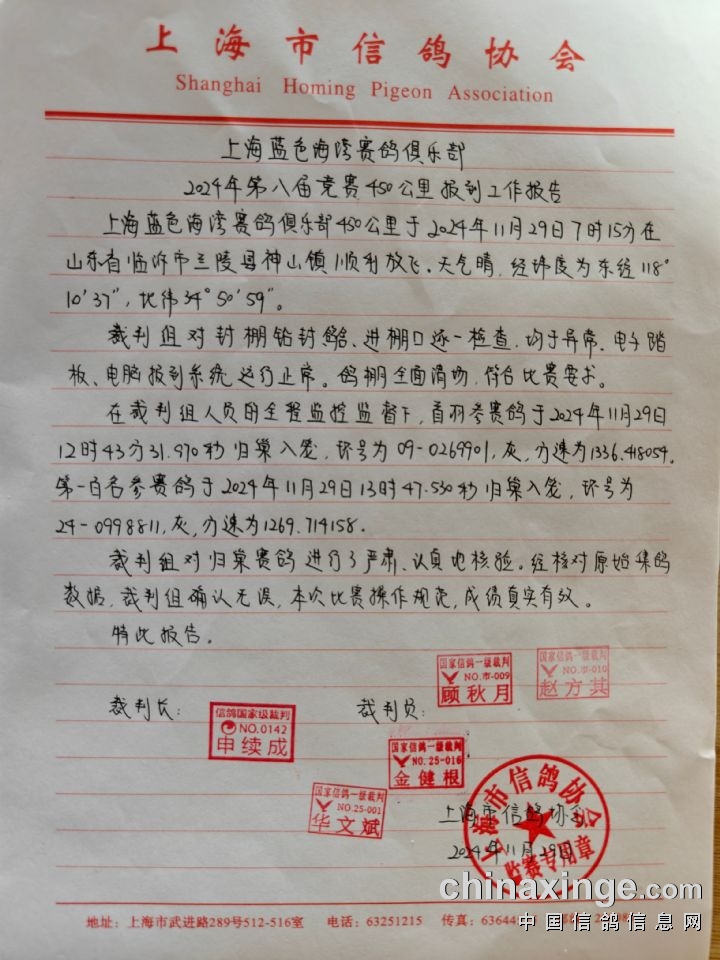 上海市信鸽协会
Shanghai Homing Pigeon Association
上海蓝色海湾赛鸽俱乐部
2024年第八届竞赛450公里报到工作报告
上海蓝色海湾赛鸽俱乐部450公里于2024年11月29日7时15分在
山东省临沂市兰陵县神山镇顺利放飞。天气晴，经纬度为东经118°
10'37"，北纬34°50'59"。
裁判组对封棚铅封、进棚口逐一检查，均于异常、电子踏
板、电脑报到系统运行正常。鸽棚全面清场，符合比赛要求。
在裁判组人员的全程监控监督下，首羽参赛鸽于2024年11月29日
12时43分31.970秒归巢入笼，环号为09-0269901，灰，分速为1336.418054。
第一百名参赛鸽于2024年11月29日13时47.530秒归巢入笼，环号为
24-0998811，灰，分速为1269.714158.
裁判组对归巢赛鸽进行了严肃、认真地核验。经核对原始集鸽
数据，裁判组确认无误，本次比赛操作规范，成绩真实有效。
特此报告。
国家信鸽一级裁判
NO.市-009
顾秋月
国家信鸽一级裁判
NO.市-010
赵方其
裁判长：
裁判员：
信鸽国家级裁判
NO.0142
申续成
国家信鸽一级裁判
NO.25-016
金健根
国家信鸽一级裁判
NO.25-001
华文斌
上海市信鸽协会
监赛专用章
上海市信鸽协会
2024年11月29日
chinaxinge.com
中国信鸽信息网
地址：上海市武进路289号512-516室 电话：63251215 传真：63644